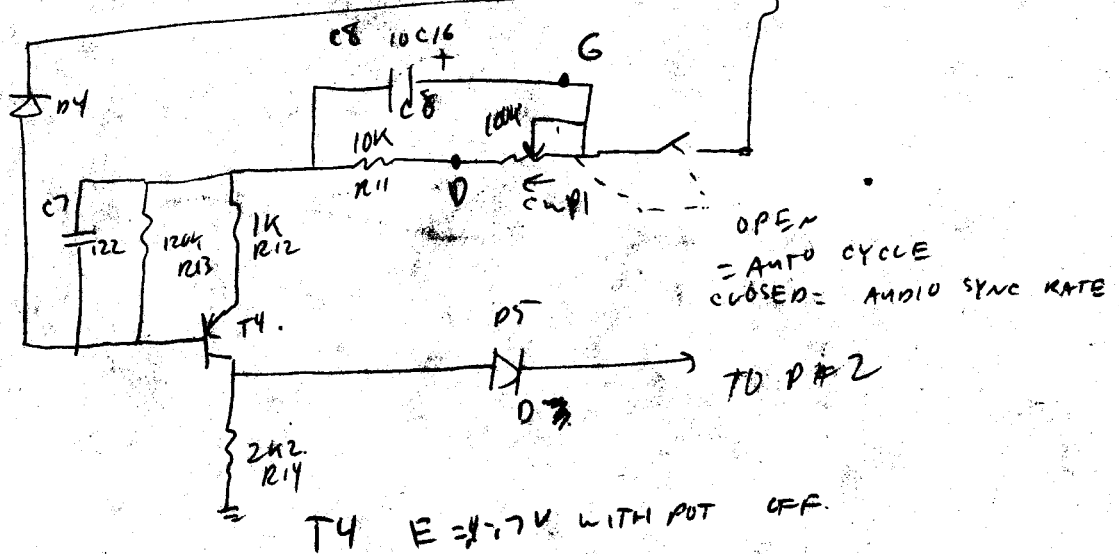 C8 10C16
+
G
D4
C8
100K
10K
R11
D
CWP1
C7
122
120K
R13
1K
R12
OPEN
= AUTO CYCLE
CLOSED= AUDIO SYNC RATE
T4.
D5
TO P#2
D
2K2.
R14
T4 E = .7V WITH POT OFF.